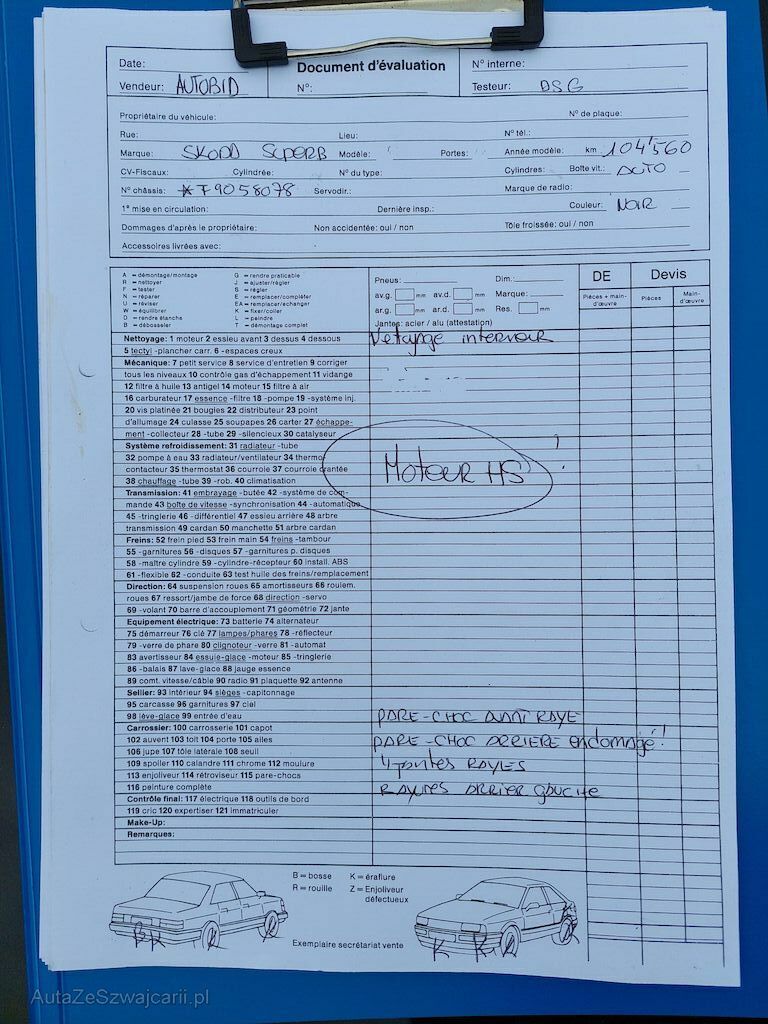 Date:
Document d'évaluation
N° interne:
Vendeur: AUTOBID
N°:
Testeur: DSG
Propriétaire du véhicule:
N° de plaque:
Rue:
Lieu:
N° tél.:
Marque: SKODA SUPERB Modèle: Portes: Année modèle: km 104'560
CV-Fiscaux: Cylindrée: N° du type: Cylindres: Boîte vit.: AUTO
N° châssis: *79058078 Servodir.: Marque de radio:
1ª mise en circulation: Dernière insp.: Couleur: NOIR
Dommages d'après le propriétaire: Non accidentée: oui / non Tôle froissée: oui / non
Accessoires livrées avec:
A = démontage/montage G = rendre praticable
R = nettoyer J = ajuster/régler
F = tester S = régler
N = réparer E = remplacer/compléter
U = réviser EA = remplacer/echanger
W = équilibrer K = fixer/coller
D = rendre étanche L = peindre
B = débosseler T = démontage complet
Pneus: Dim.:
av.g. mm av.d. mm Marque:
ar.g. mm ar.d. mm Res. mm
Jantes: acier / alu (attestation)
DE
Devis
Pièces + main-d'œuvre
Pièces
Main-d'œuvre
Nettoyage: 1 moteur 2 essieu avant 3 dessus 4 dessous
Netoyage interieur
5 tectyl -plancher carr. 6 -espaces creux
Mécanique: 7 petit service 8 service d'entretien 9 corriger
tous les niveaux 10 contrôle gaz d'échappement 11 vidange
12 filtre à huile 13 antigel 14 moteur 15 filtre à air
16 carburateur 17 essence -filtre 18 -pompe 19 -système inj.
20 vis platinée 21 bougies 22 distributeur 23 point
d'allumage 24 culasse 25 soupapes 26 carter 27 échappe-
ment -collecteur 28 -tube 29 -silencieux 30 catalyseur
Système refroidissement: 31 radiateur -tube
32 pompe à eau 33 radiateur/ventilateur 34 thermo-
contacteur 35 thermostat 36 courroie 37 courroie crantée
MOTEUR HS !
38 chauffage -tube 39 -rob. 40 climatisation
Transmission: 41 embrayage -butée 42 -système de com-
mande 43 boîte de vitesse -synchronisation 44 -automatique
45 -tringlerie 46 -différentiel 47 essieu arrière 48 arbre
transmission 49 cardan 50 manchette 51 arbre cardan
Freins: 52 frein pied 53 frein main 54 freins -tambour
55 -garnitures 56 -disques 57 -garnitures p. disques
58 -maître cylindre 59 -cylindre-récepteur 60 install. ABS
61 -flexible 62 -conduite 63 test huile des freins/remplacement
Direction: 64 suspension roues 65 amortisseurs 66 roulem.
roues 67 ressort/jambe de force 68 direction -servo
69 -volant 70 barre d'accouplement 71 géométrie 72 jante
Equipement électrique: 73 batterie 74 alternateur
75 démarreur 76 clé 77 lampes/phares 78 -réflecteur
79 -verre de phare 80 clignoteur -verre 81 -automat
83 avertisseur 84 essuie-glace -moteur 85 -tringlerie
86 -balais 87 lave-glace 88 jauge essence
89 comt. vitesse/câble 90 radio 91 plaquette 92 antenne
Sellier: 93 intérieur 94 sièges -capitonnage
95 carcasse 96 garnitures 97 ciel
98 lève-glace 99 entrée d'eau
PARE-CHOC AVANT RAYE
Carrossier: 100 carrosserie 101 capot
102 auvent 103 toit 104 porte 105 ailes
PARE-CHOC ARRIERE endomagé!
106 jupe 107 tôle latérale 108 seuil
109 spoiler 110 calandre 111 chrome 112 moulure
4 jantes RAYLES
113 enjoliveur 114 rétroviseur 115 pare-chocs
116 peinture complète
RAYURES ARRIER gauche
Contrôle final: 117 électrique 118 outils de bord
119 cric 120 expertiser 121 immatriculer
Make-Up:
Remarques:
B = bosse K = éraflure
R = rouille Z = Enjoliveur défectueux
Exemplaire secrétariat vente
AutaZeSzwajcarii.pl